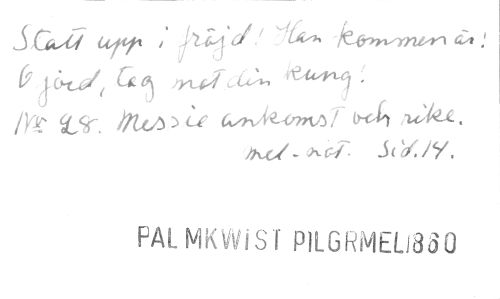 Statt upp i fröjd! Han kommen är!
O jord, tag mot din kung!
No 28. Messie ankomst och rike.
mel-not. Sid. 14.
PALMKWIST PILGRMEL1860